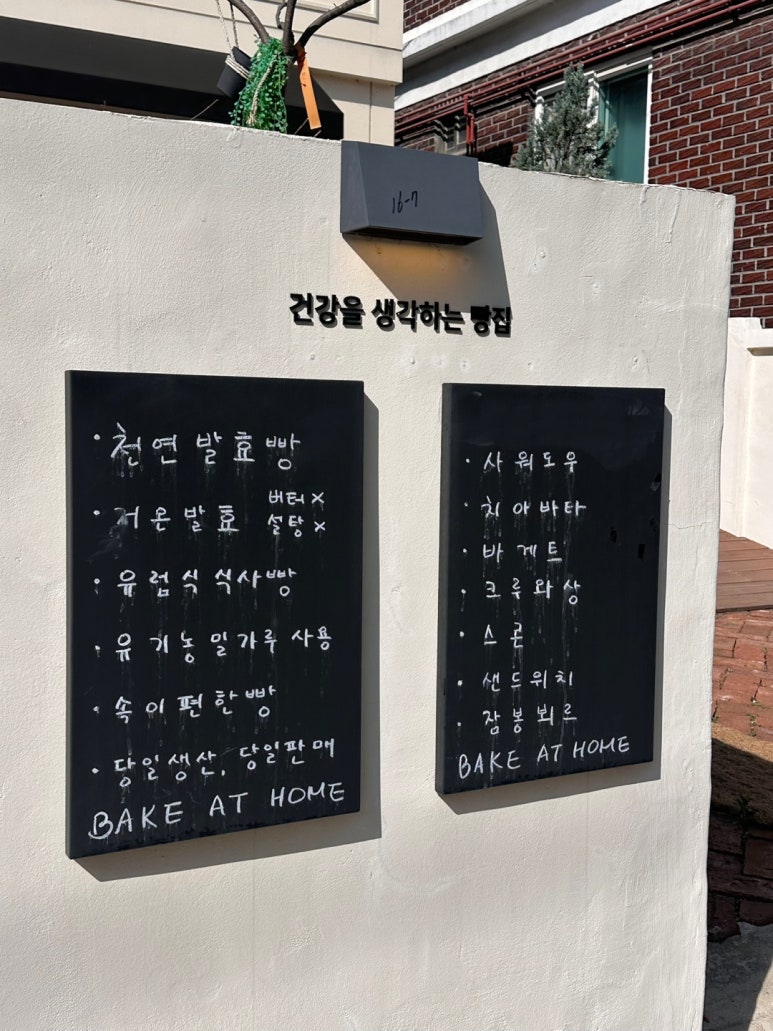 16-7
건강을 생각하는 빵집
· 천연발효빵
· 저온발효 버터 x
설탕 x
· 유럽식 식사빵
· 유기농밀가루 사용
· 속이편한빵
· 당일생산, 당일판매
BAKE AT HOME
· 사워도우
· 치아바타
· 바게트
· 크루와상
· 스콘
· 샌드위치
· 잠봉뵈르
BAKE AT HOME